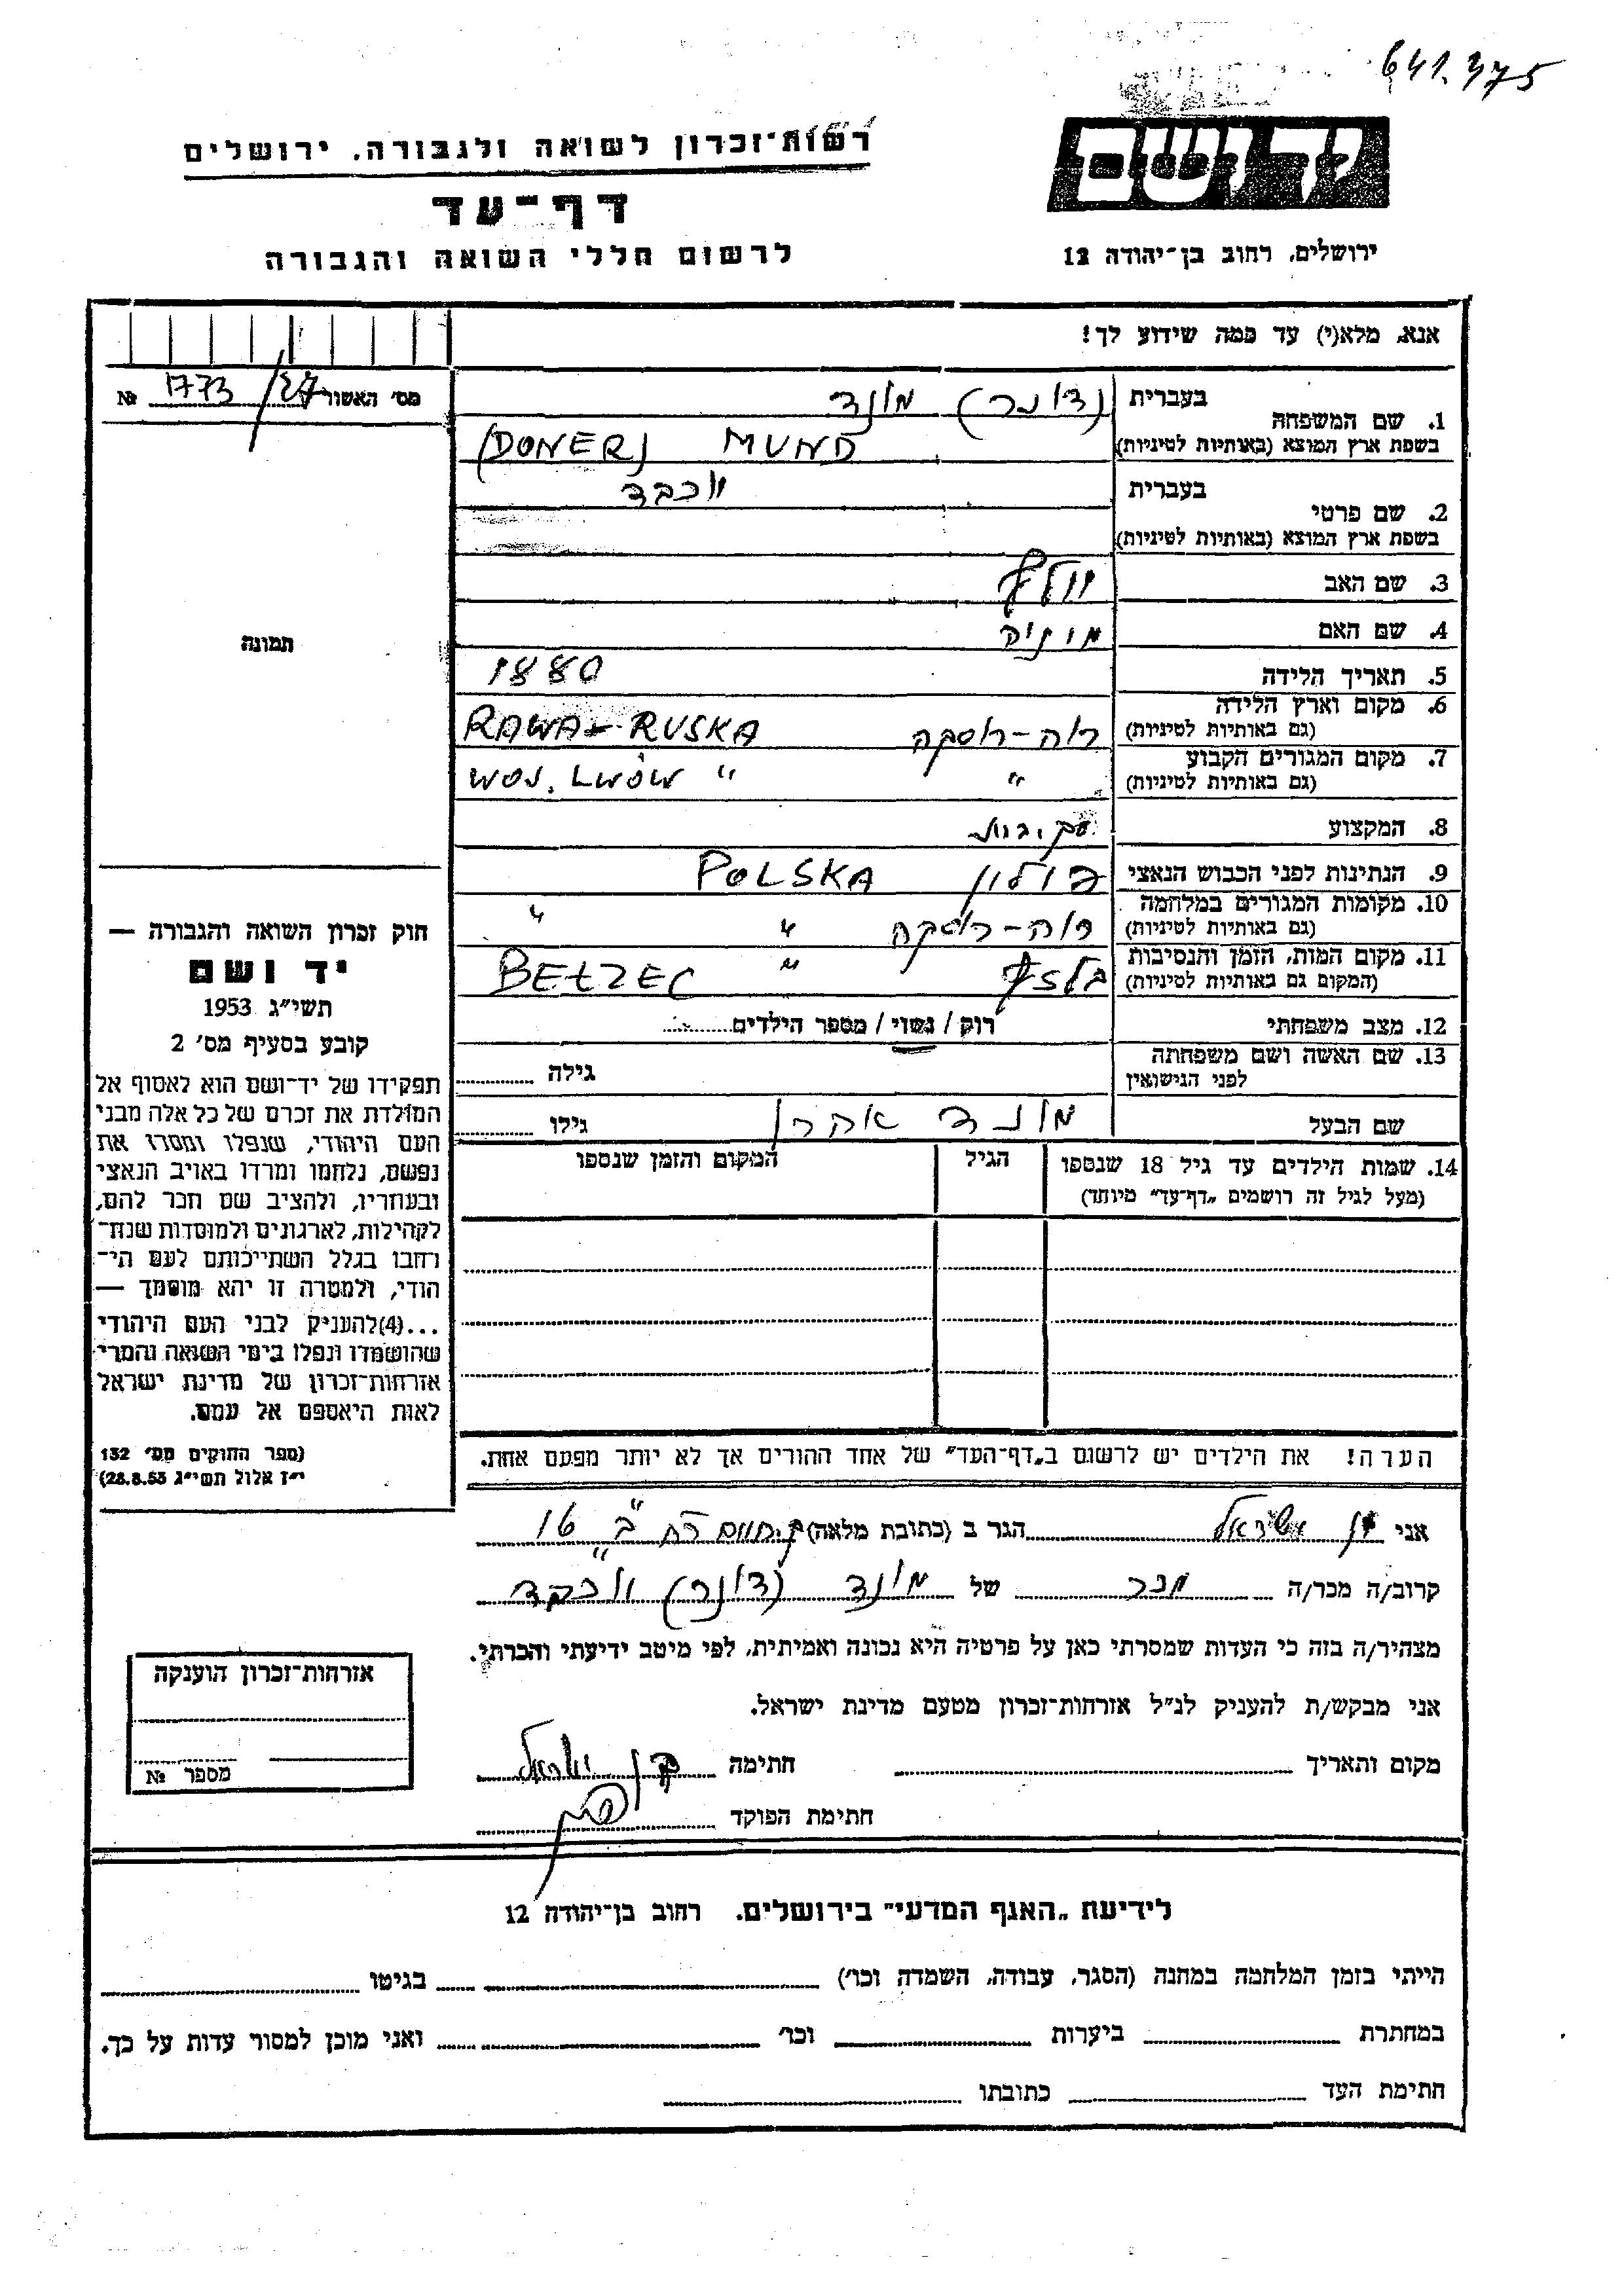 641.475
יד ושם
ירושלים, רחוב בן־יהודה 12
רשות־זכרון לשואה ולגבורה, ירושלים
דף־עד
לרשום חללי השואה והגבורה
אנא, מלא(י) עד כמה שידוע לך!
מס' האשור 27/1773 №
1. שם המשפחה
בעברית (דונר) מונד
בשפת ארץ המוצא (באותיות לטיניות) (DONER) MUND
2. שם פרטי
בעברית יוכבד
בשפת ארץ המוצא (באותיות לטיניות)
3. שם האב וולף
4. שם האם
5. תאריך הלידה 1880
6. מקום וארץ הלידה
(גם באותיות לטיניות) רוה-רוסקה RAWA-RUSKA
7. מקום המגורים הקבוע
(גם באותיות לטיניות) " " WOJ. LWÓW
8. המקצוע
9. הנתינות לפני הכבוש הנאצי פולין POLSKA
10. מקומות המגורים במלחמה
(גם באותיות לטיניות) רוה-רוסקה " "
11. מקום המות, הזמן והנסיבות
(המקום גם באותיות לטיניות) בלזץ " BEŁZEC
12. מצב משפחתי רוק / נשוי / מספר הילדים
13. שם האשה ושם משפחתה
לפני הנישואין גילה
שם הבעל מונד אהרן גילו
14. שמות הילדים עד גיל 18 שנספו
(מעל לגיל זה רושמים „דף־עד" מיוחד)
הגיל
המקום והזמן שנספו
תמונה
חוק זכרון השואה והגבורה —
יד ושם
תשי"ג 1953
קובע בסעיף מס' 2
תפקידו של יד־ושם הוא לאסוף אל
המולדת את זכרם של כל אלה מבני
העם היהודי, שנפלו ומסרו את
נפשם, נלחמו ומרדו באויב הנאצי
ובעוזריו, ולהציב שם וזכר להם,
לקהילות, לארגונים ולמוסדות שנח־
רבו בגלל השתייכותם לעם הי־
הודי, ולמטרה זו יהא מוסמך —
...(4)להעניק לבני העם היהודי
שהושמדו ונפלו בימי השואה והמרי
אזרחות־זכרון של מדינת ישראל
לאות היאספם אל עמם.
(ספר החוקים מס' 132
י"ז אלול תשי"ג 28.8.53)
הערה! את הילדים יש לרשום ב„דף־העד" של אחד ההורים אך לא יותר מפעם אחת.
אני ישראל הגר ב (כתובת מלאה) 16
קרוב/ה מכר/ה מכר של מונד (דונר) יוכבד
מצהיר/ה בזה כי העדות שמסרתי כאן על פרטיה היא נכונה ואמיתית, לפי מיטב ידיעתי והכרתי.
אני מבקש/ת להעניק לנ"ל אזרחות־זכרון מטעם מדינת ישראל.
מקום ותאריך חתימה
חתימת הפוקד
אזרחות־זכרון הוענקה
מספר №
לידיעת „האגף המדעי" בירושלים. רחוב בן־יהודה 12
הייתי בזמן המלחמה במחנה (הסגר, עבודה, השמדה וכו') בגיטו
במחתרת ביערות וכו' ואני מוכן למסור עדות על כך.
חתימת העד כתובתו